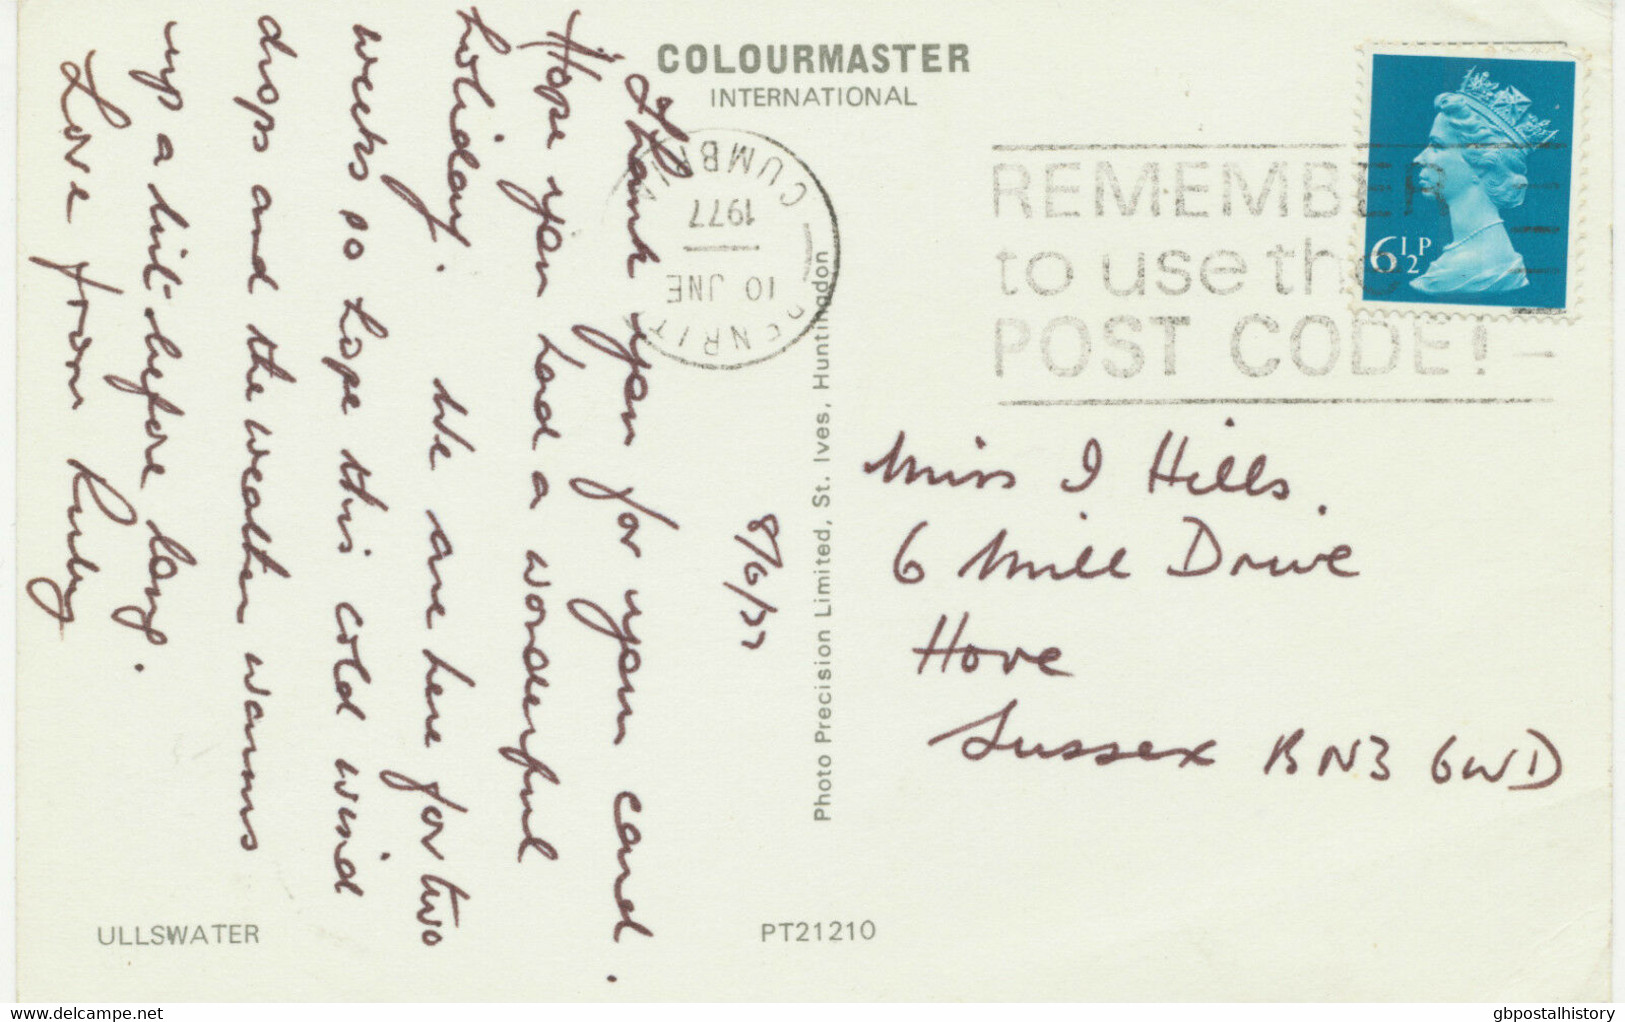 COLOURMASTER
INTERNATIONAL
PENRITH CUMBRIA
10 JNE
1977
REMEMBER
to use the
POST CODE!
6½P
8/6/77
Thank you for your card.
Hope you had a wonderful
holiday. We are here for two
weeks so hope this cold wind
drops and the weather warms
up a bit before long.
Love from Ruby
Miss I Hills.
6 Mill Drive
Hove
Sussex BN3 6WD
Photo Precision Limited, St. Ives, Huntingdon
ULLSWATER
PT21210
delcampe.net
gbpostalhistory